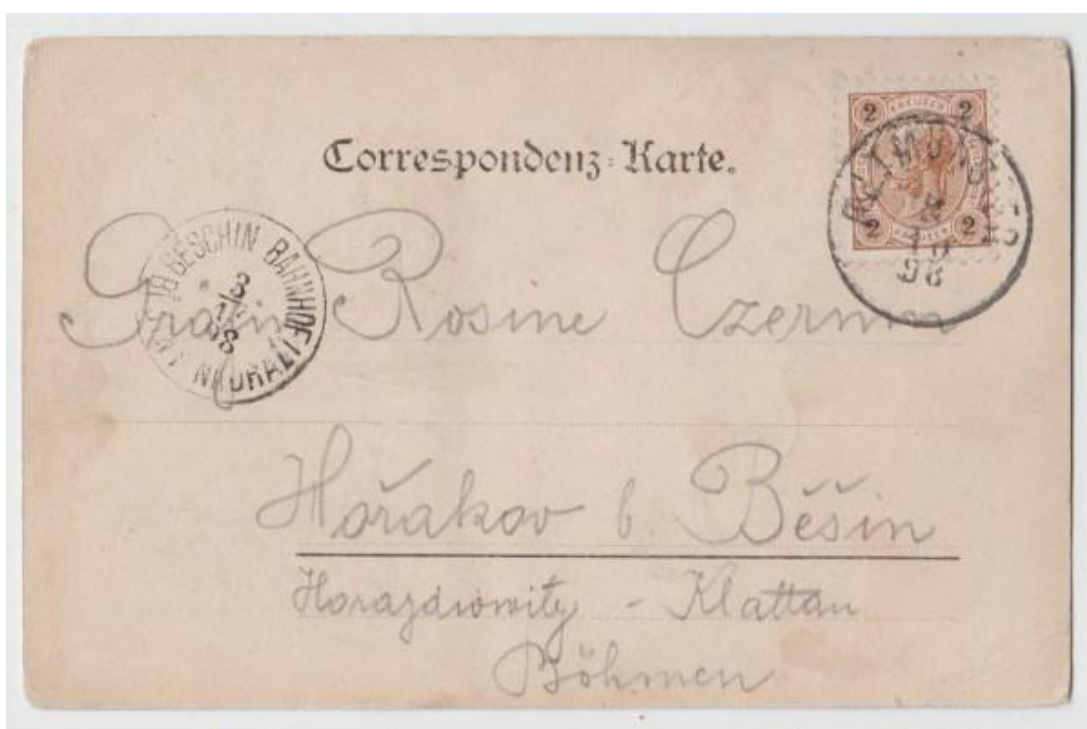 Correspondenz-Karte.
2 KREUZER 2
2 KREUZER 2
2
98
BESCHIN BAHNHOF
3
98
Gräfin Rosine Czernin
Hořákov b. Běšin
Horazdiowitz - Klattau
Böhmen